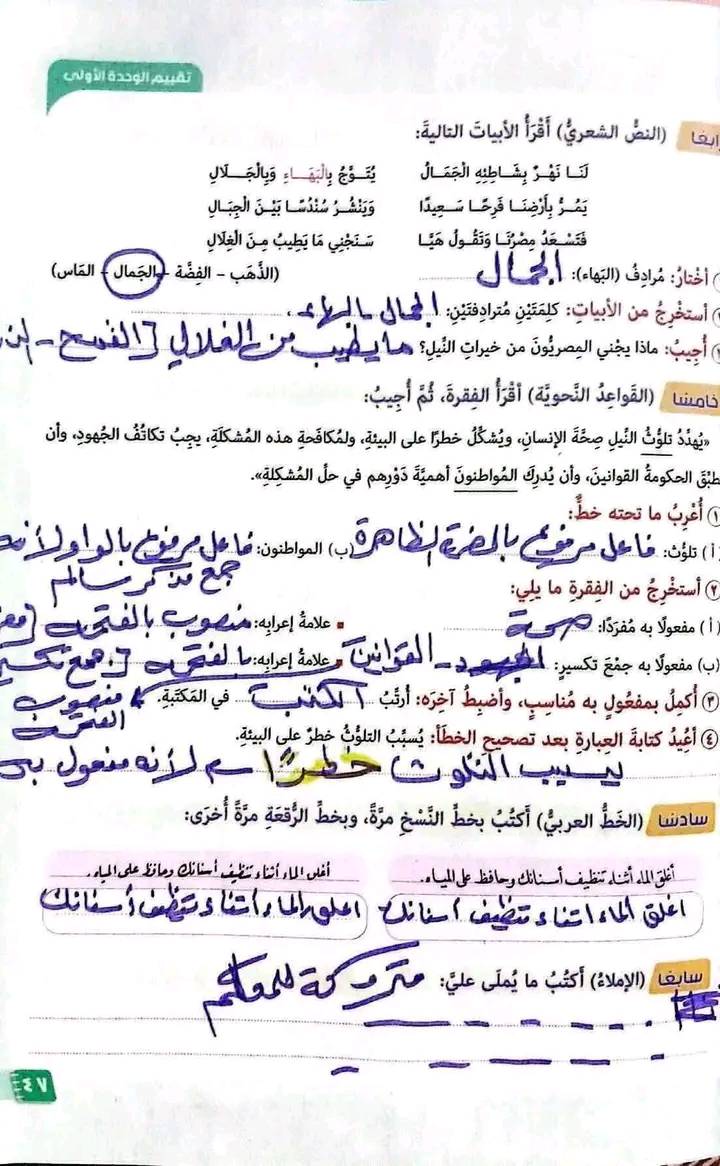 تقييم الوحدة الأولى
رابعًا (النصُّ الشعريُّ) أَقْرَأُ الأبياتَ التاليةَ:
لَنَا نَهْرٌ بِشَاطِئِهِ الْجَمَالُ يُتَوَّجُ بِالْبَهَاءِ وَبِالْجَلَالِ
يَمُرُّ بِأَرْضِنَا فَرِحًا سَعِيدًا وَيَنْشُرُ سُنْدُسًا بَيْنَ الْجِبَالِ
فَتَسْعَدُ مِصْرُنَا وَتَقُولُ هَيَّا سَنَجْنِي مَا يَطِيبُ مِنَ الْغِلَالِ
أختارُ: مُرادِفُ (البَهاء): الجمال (الذَّهَب - الفِضَّة - الجَمال - المَاس)
أستخْرِجُ من الأبياتِ: كلِمَتَيْنِ مُترادِفتَيْنِ: الجمال بالبهاء
أُجيبُ: ماذا يجْني المِصريُّونَ من خيراتِ النِّيلِ؟ ما يطيب من الغلال [القمح -
خامسًا (القَواعِدُ النَّحويَّة) أقْرَأُ الفِقرةَ، ثُمَّ أُجيبُ:
«يُهدِّدُ تلوُّثُ النِّيلِ صِحَّةَ الإنسانِ، ويُشكِّلُ خطرًا على البيئةِ، ولمُكافَحةِ هذه المُشكلَةِ، يجِبُ تكاتُفُ الجُهودِ، وأن
تطبِّقَ الحكومةُ القوانينَ، وأن يُدرِكَ المُواطنونَ أهميَّةَ دَوْرِهم في حلِّ المُشكِلةِ».
١ أُعْرِبُ ما تحته خطٌّ:
(أ) تلوُّث: فاعل مرفوع بالضمة الظاهرة (ب) المواطنون: فاعل مرفوع بالواو لأنه
جمع مذكر سالم
٢ أستخْرِجُ من الفِقرةِ ما يلِي:
(أ) مفعولًا به مُفرَدًا: صحة علامةُ إعرابِه: منصوب بالفتحة
(ب) مفعولًا به جمْعَ تكسيرٍ: القوانين علامةُ إعرابِه: بالفتحة [جمع تكسير
٣ أُكمِلُ بمفعُولٍ به مُناسِبٍ، وأضبِطُ آخِرَه: أُرتِّبُ الكتب في المَكتَبةِ. منصوب
الفتحة
٤ أُعِيدُ كتابةَ العِبارةِ بعد تصحيحِ الخطأ: يُسبِّبُ التلوُّثُ خطرٌ على البيئةِ.
يسبب التلوث خطرًا لأنه مفعول به
سادسًا (الخَطُّ العربيُّ) أكتُبُ بخطِّ النَّسْخِ مرَّةً، وبخطِّ الرُّقعَةِ مرَّةً أُخرَى:
أغلق الماء أثناء تنظيف أسنانك وحافظ على المياه. أغلق الماء أثناء تنظيف أسنانك وحافظ على المياه.
اغلق الماء اثناء تنظيف اسنانك اغلق الماء اثناء تنظيف اسنانك
سابعًا (الإملاءُ) أكتُبُ ما يُملَى عليَّ: متروكة للمعلم
٤٧